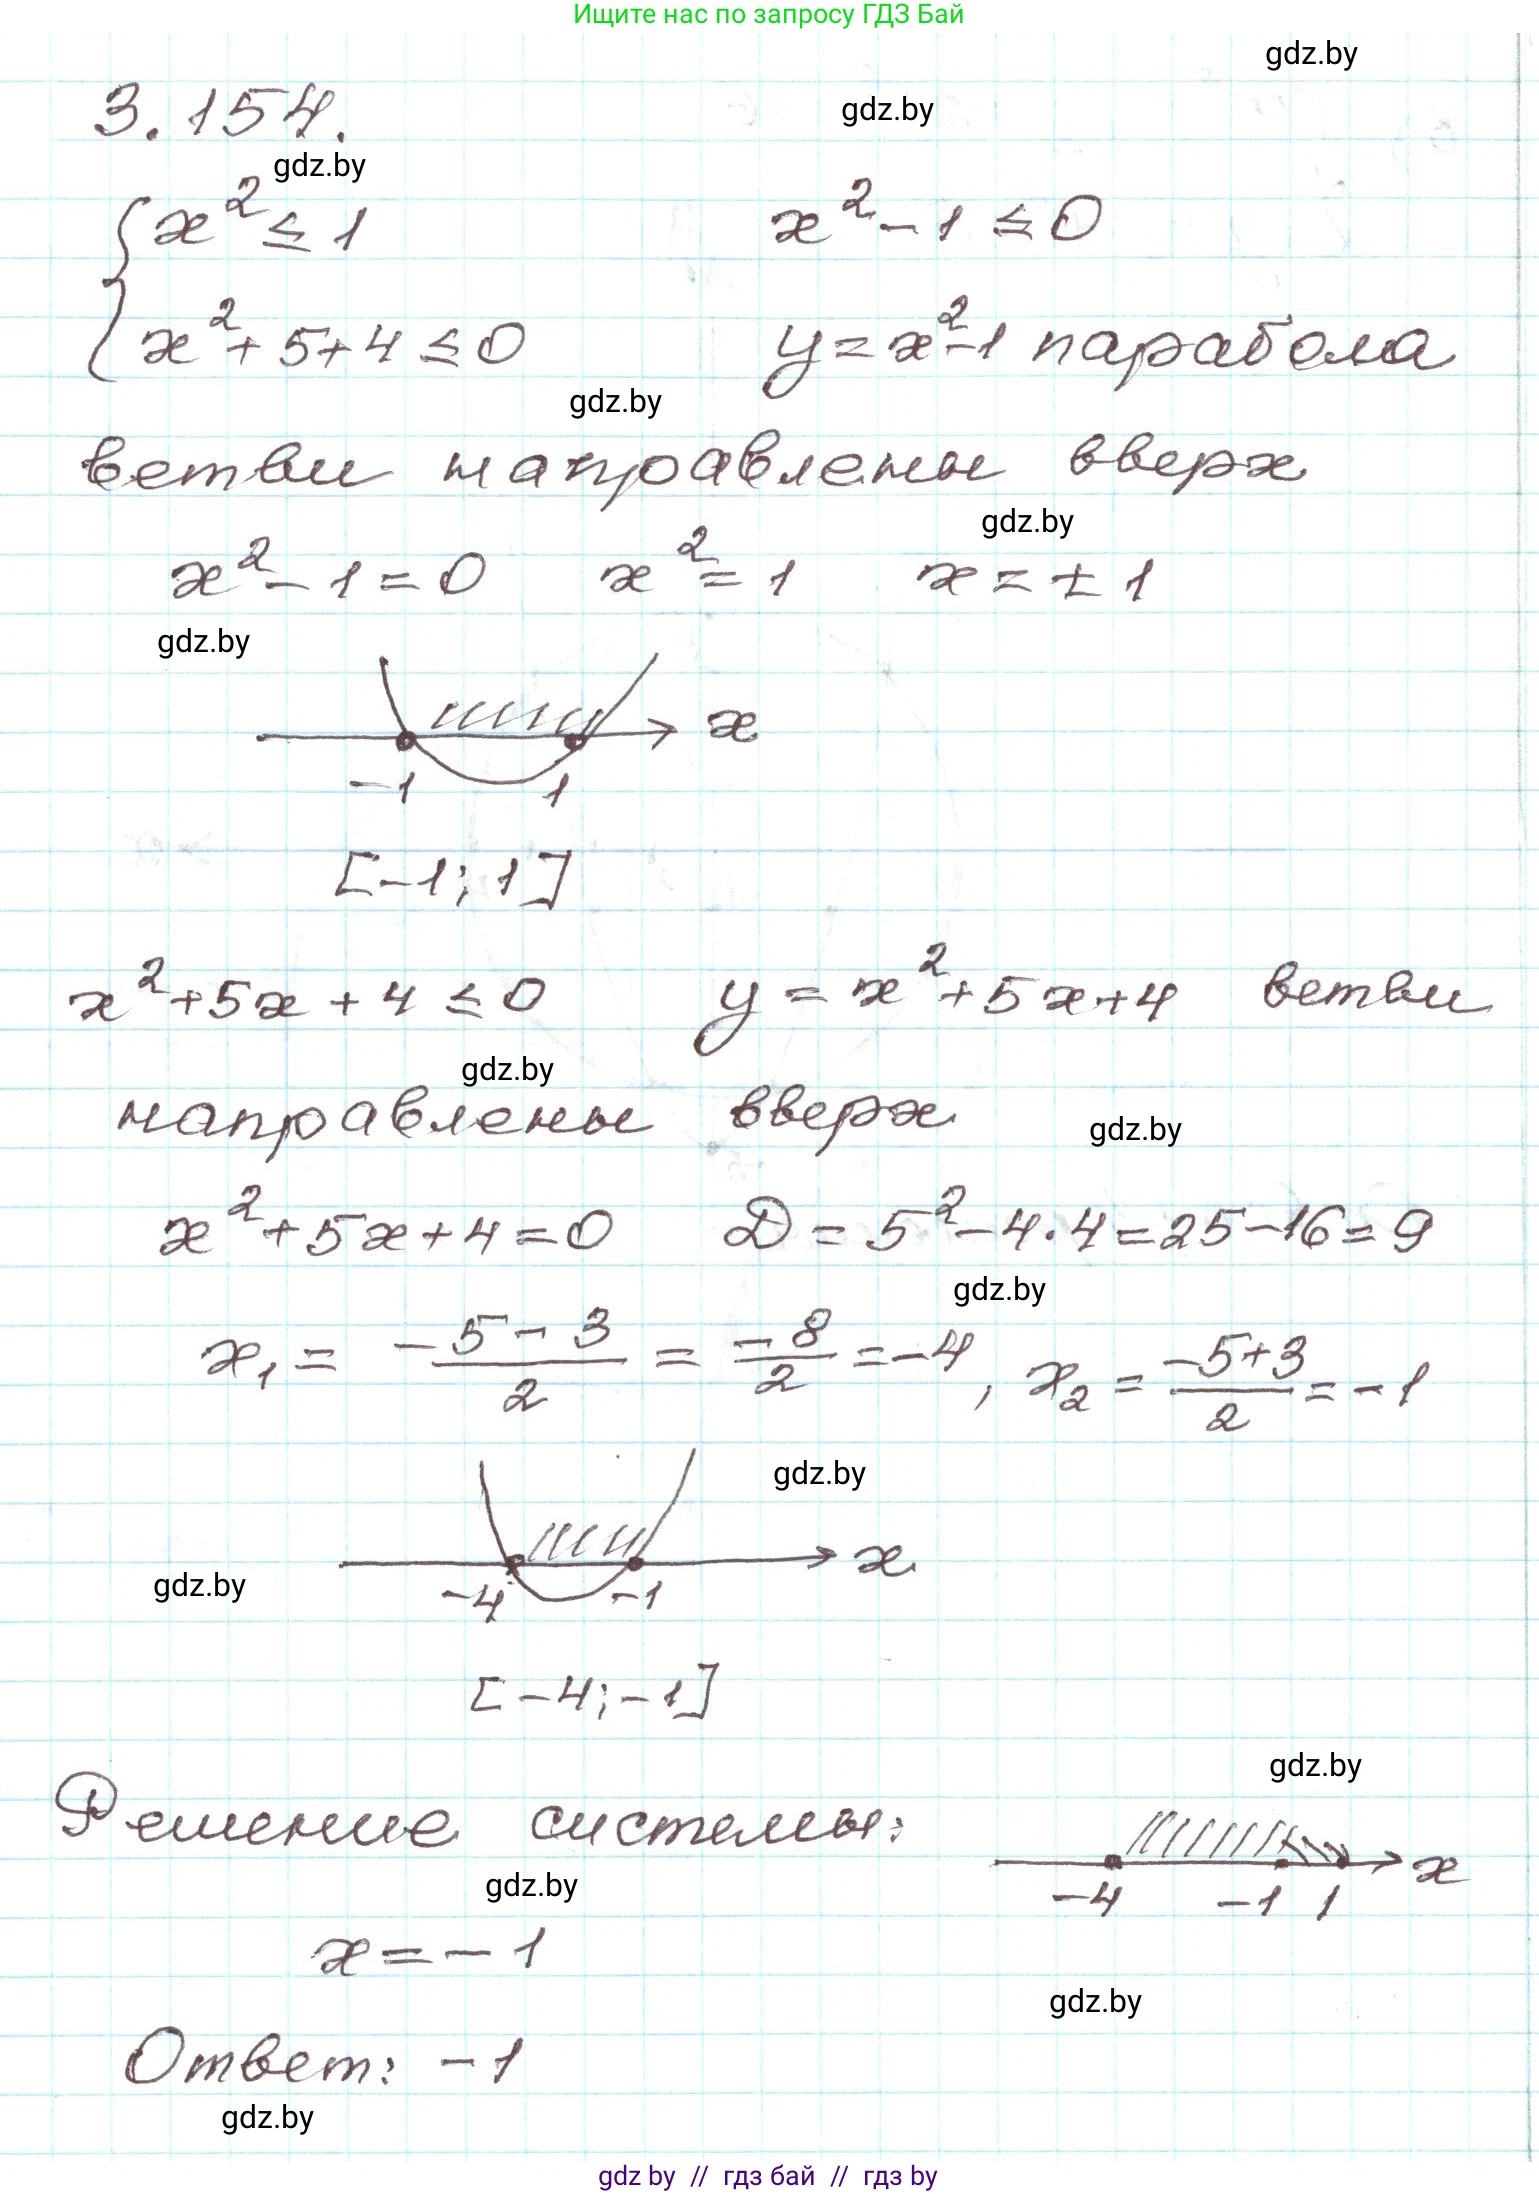 Ищите нас по запросу ГДЗ Бай
gdz.by
3.154.
gdz.by
gdz.by
{ x² ≤ 1    x² - 1 ≤ 0
x² + 5 + 4 ≤ 0    y = x² - 1 парабола
gdz.by
ветви направлены вверх
gdz.by
x² - 1 = 0    x² = 1    x = ± 1
gdz.by
x
-1    1
[-1; 1]
x² + 5x + 4 ≤ 0    y = x² + 5x + 4 ветви
gdz.by
направлены вверх
gdz.by
x² + 5x + 4 = 0    D = 5² - 4·4 = 25 - 16 = 9
gdz.by
x₁ = (-5 - 3)/2 = -8/2 = -4, x₂ = (-5 + 3)/2 = -1
gdz.by
x
gdz.by
-4    -1
[-4; -1]
gdz.by
Решение системы:
x
gdz.by
-4    -1    1
x = -1
gdz.by
Ответ: -1
gdz.by
gdz by // гдз бай // gdz by